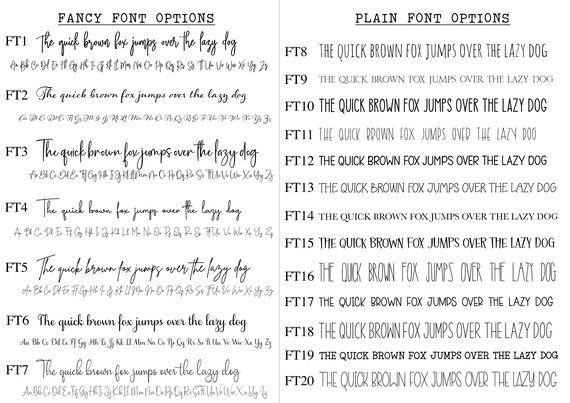 FANCY FONT OPTIONS
FT1 The quick brown fox jumps over the lazy dog
Aa Bb Cc Dd Ee Ff Gg Hh Ii Jj Kk Ll Mm Nn Oo Pp Qq Rr Ss Tt Uu Vv Ww Xx Yy Zz
FT2 The quick brown fox jumps over the lazy dog
Aa Bb Cc Dd Ee Ff Gg Hh Ii Jj Kk Ll Mm Nn Oo Pp Qq Rr Ss Tt Uu Vv Ww Xx Yy Zz
FT3 The quick brown fox jumps over the lazy dog
Aa Bb Cc Dd Ee Ff Gg Hh Ii Jj Kk Ll Mm Nn Oo Pp Qq Rr Ss Tt Uu Vv Ww Xx Yy Zz
FT4 The quick brown fox jumps over the lazy dog
Aa Bb Cc Dd Ee Ff Gg Hh Ii Jj Kk Ll Mm Nn Oo Pp Qq Rr Ss Tt Uu Vv Ww Xx Yy Zz
FT5 The quick brown fox jumps over the lazy dog
Aa Bb Cc Dd Ee Ff Gg Hh Ii Jj Kk Ll Mm Nn Oo Pp Qq Rr Ss Tt Uu Vv Ww Xx Yy Zz
FT6 The quick brown fox jumps over the lazy dog
Aa Bb Cc Dd Ee Ff Gg Hh Ii Jj Kk Ll Mm Nn Oo Pp Qq Rr Ss Tt Uu Vv Ww Xx Yy Zz
FT7 The quick brown fox jumps over the lazy dog
Aa Bb Cc Dd Ee Ff Gg Hh Ii Jj Kk Ll Mm Nn Oo Pp Qq Rr Ss Tt Uu Vv Ww Xx Yy Zz
PLAIN FONT OPTIONS
FT8 THE QUICK BROWN FOX JUMPS OVER THE LAZY DOG
FT9 THE QUICK BROWN FOX JUMPS OVER THE LAZY DOG
FT10 THE QUICK BROWN FOX JUMPS OVER THE LAZY DOG
FT11 THE QUICK BROWN FOX JUMPS OVER THE LAZY DOG
FT12 THE QUICK BROWN FOX JUMPS OVER THE LAZY DOG
FT13 THE QUICK BROWN FOX JUMPS OVER THE LAZY DOG
FT14 THE QUICK BROWN FOX JUMPS OVER THE LAZY DOG
FT15 THE QUICK BROWN FOX JUMPS OVER THE LAZY DOG
FT16 THE QUICK BROWN FOX JUMPS OVER THE LAZY DOG
FT17 THE QUICK BROWN FOX JUMPS OVER THE LAZY DOG
FT18 THE QUICK BROWN FOX JUMPS OVER THE LAZY DOG
FT19 THE QUICK BROWN FOX JUMPS OVER THE LAZY DOG
FT20 THE QUICK BROWN FOX JUMPS OVER THE LAZY DOG